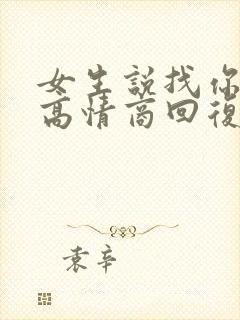 女生說找你
高情商回復
袁辛